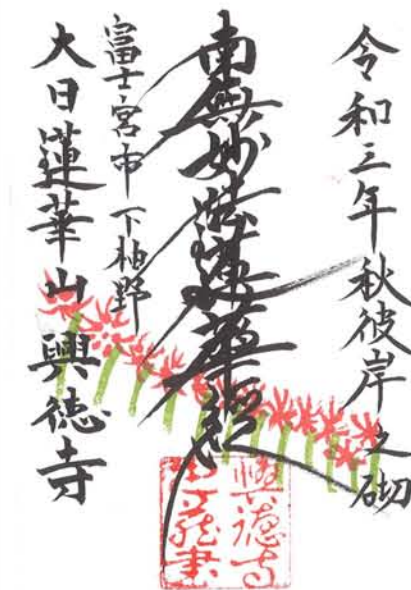 令和三年秋彼岸之砌
南無妙法蓮華経
富士宮市下柚野
大日蓮華山興徳寺
興徳寺